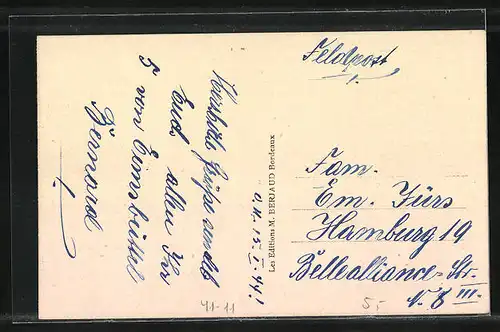 Feldpost
Herzliche Grüße sendet
Euch allen Ihr
T von Eimsbüttel
Bernard
Les Editions M. BERJAUD Bordeaux
15. I. 41!
Fam.
Em. Fürs
Hamburg 19
Bellealliance-Str.
N. 8 III.
41-11
5.-